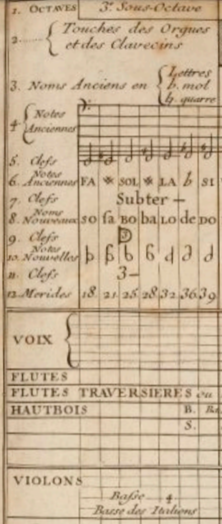 1. OCTAVES 3e. Sous-Octave
2. Touches des Orgues
et des Clavecins
3. Noms Anciens en Lettres
b. mol
♮. quarre
4 Notes
Anciennes
5. Clefs
6. Notes Anciennes FA ※ SOL ※ LA b SI
7. Clefs Subter —
8. Noms Nouveaux SO fa BO ba LO de DO
9. Clefs
10. Notes Nouvelles
11. Clefs 3—
12. Merides 18. 21. 25. 28. 32. 36. 39
VOIX
FLUTES
FLUTES TRAVERSIERES ou
HAUTBOIS B. Ba
S.
VIOLONS
Basse 4
Basse des Italiens